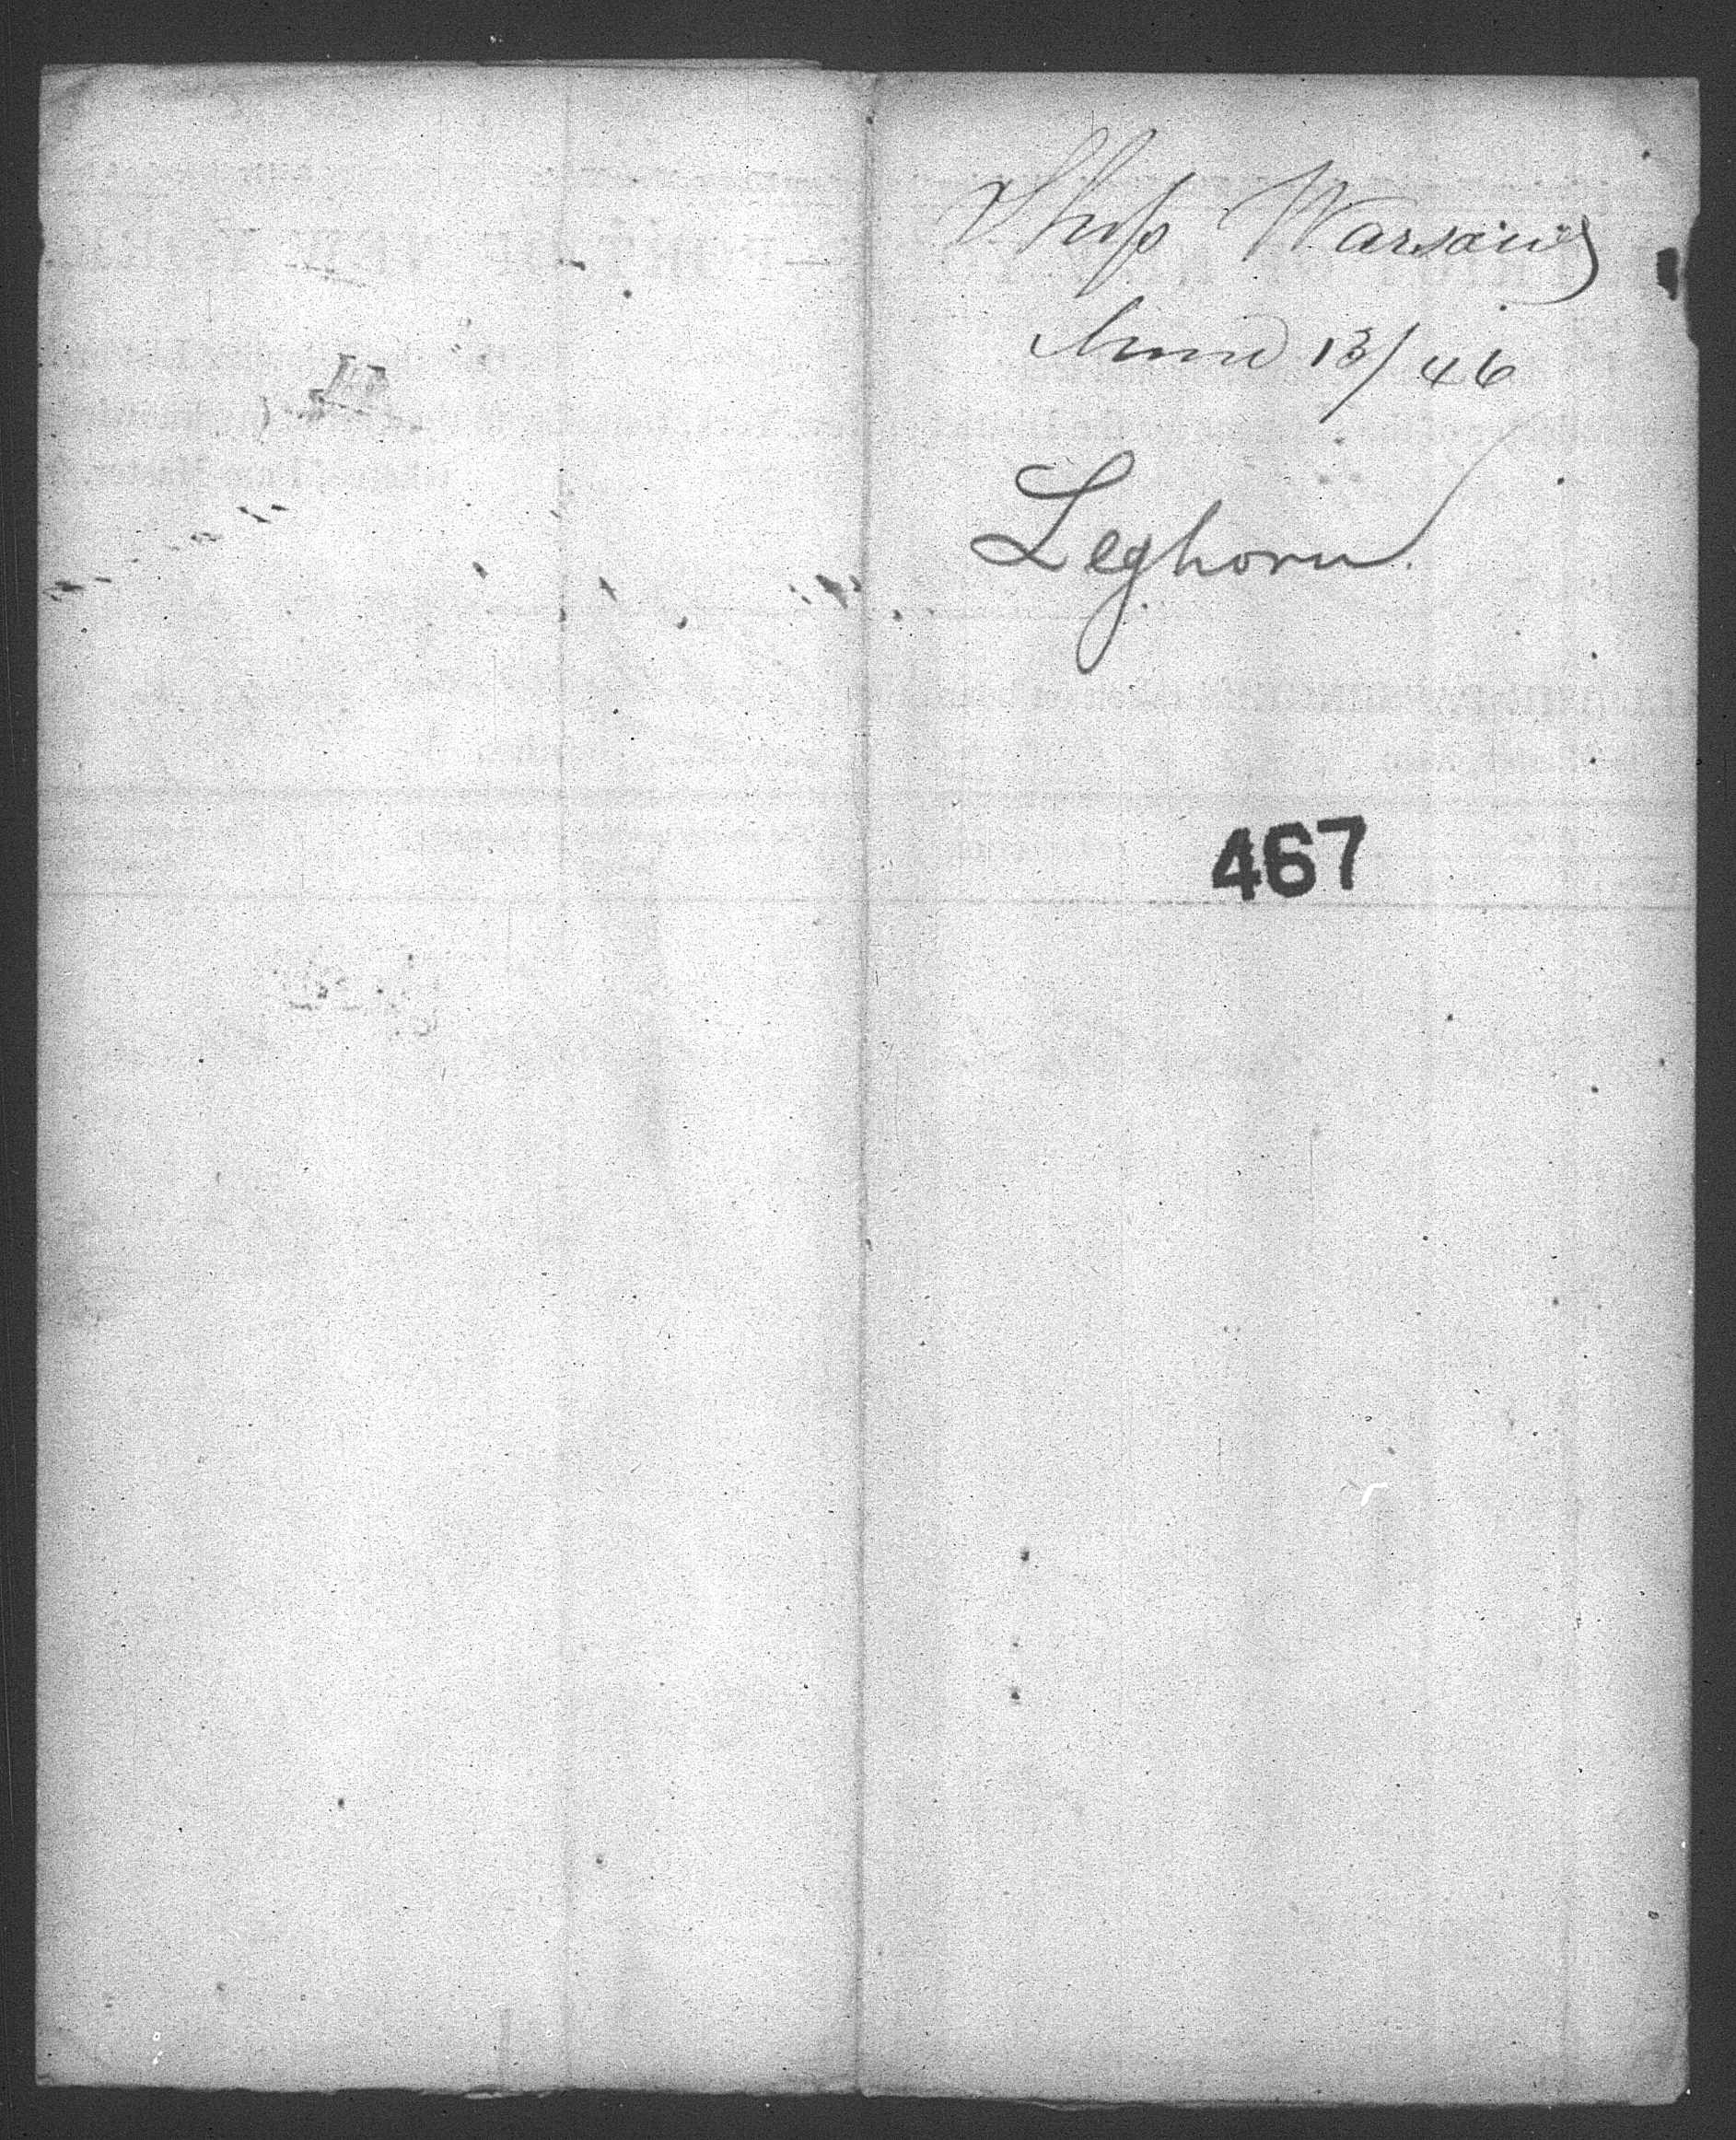 Ship Warsaw
June 13/46
Leghorn
467